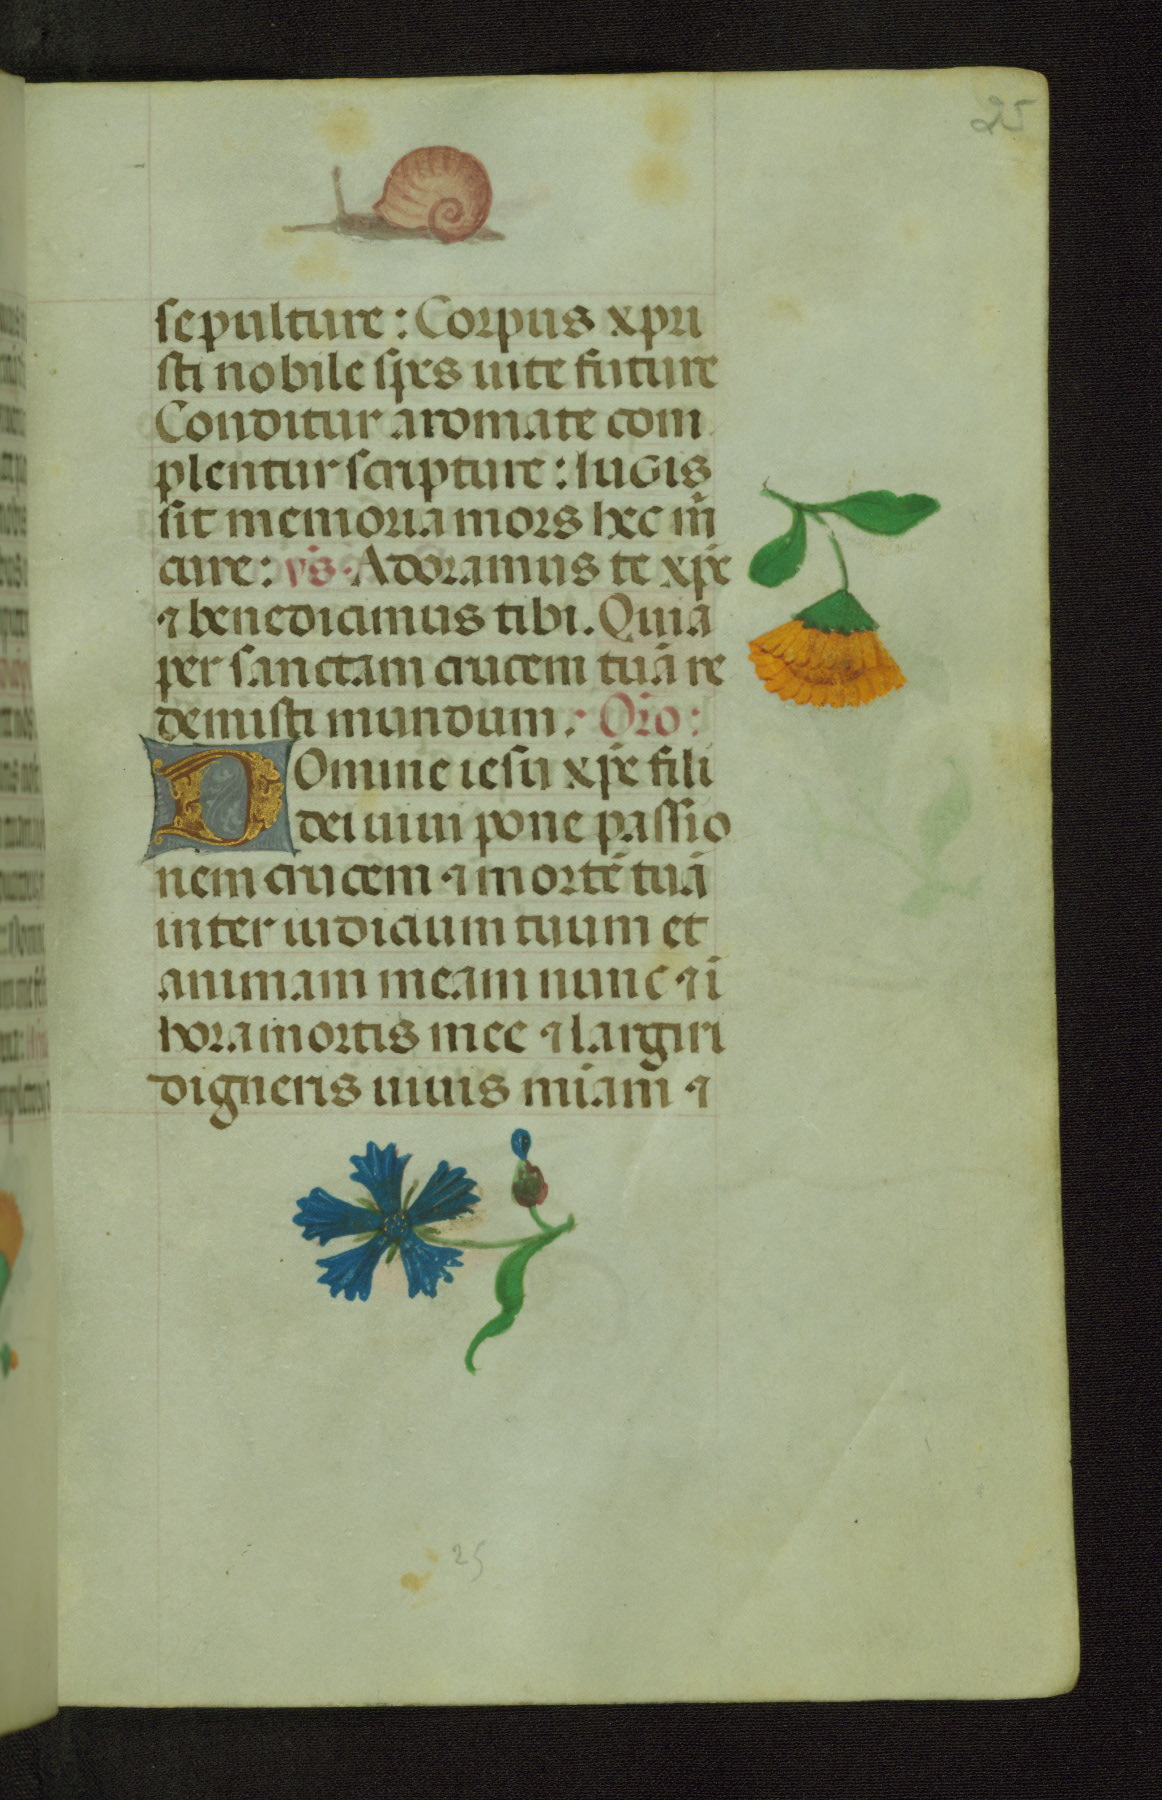 25
sepulture : Corpus xpri
sti nobile sp̱es uite future
Conditur aromate com
plentur scripture : Iugis
sit memoria mors hec m̄
cure : v̄s. Adoramus te xp̄e
⁊ benedicimus tibi. Quia
per sanctam crucem tuā re
demisti mundum. Or̄o :
Domine iesu xp̄e fili
dei uiui pone passio
nem crucem ⁊ mortē tuā
inter iudicium tuum et
animam meam nunc ⁊ ī
hora mortis mee ⁊ largiri
digneris uiuis mīam ⁊
25